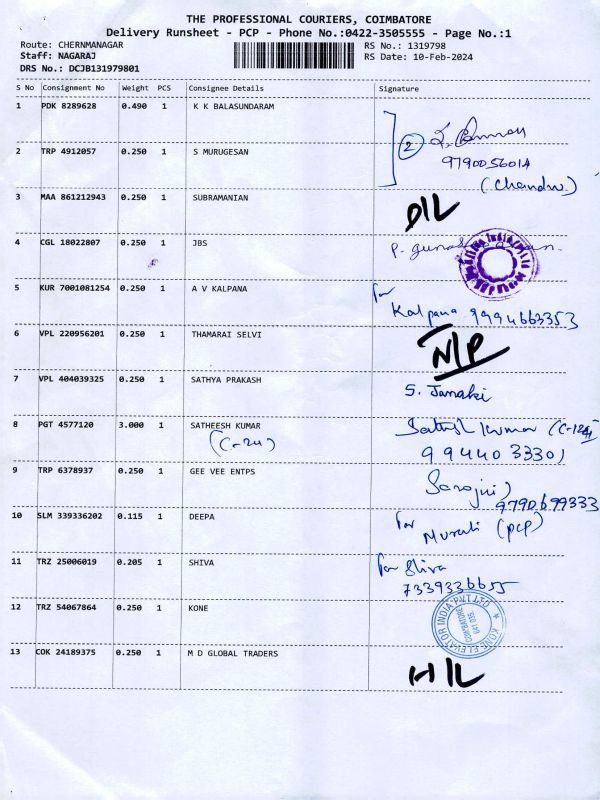 THE PROFESSIONAL COURIERS, COIMBATORE
Delivery Runsheet - PCP - Phone No.:0422-3505555 - Page No.:1
Route: CHERNMANAGAR RS No.: 1319798
Staff: NAGARAJ RS Date: 10-Feb-2024
DRS No.: DCJB131979801
S No Consignment No Weight PCS Consignee Details Signature
1 PDK 8289628 0.490 1 K K BALASUNDARAM
2
2 TRP 4912057 0.250 1 S MURUGESAN 9790056014
(Chandru)
3 MAA 861212943 0.250 1 SUBRAMANIAN D/L
4 CGL 18022807 0.250 1 JBS
5 KUR 7001081254 0.250 1 A V KALPANA for
Kalpana 9994663353
6 VPL 220956201 0.250 1 THAMARAI SELVI N/P
7 VPL 404039325 0.250 1 SATHYA PRAKASH S. Janaki
8 PGT 4577120 3.000 1 SATHEESH KUMAR Sathish Kumar (C-124)
(C-24) 9944033301
9 TRP 6378937 0.250 1 GEE VEE ENTPS Sarojini
9790699333
10 SLM 339336202 0.115 1 DEEPA for
Murali (PCP)
11 TRZ 25006019 0.205 1 SHIVA for Shiva
7339336655
12 TRZ 54067864 0.250 1 KONE KONE ELEVATOR INDIA PVT LTD
COIMBATORE
641 035
13 COK 24189375 0.250 1 M D GLOBAL TRADERS H/L